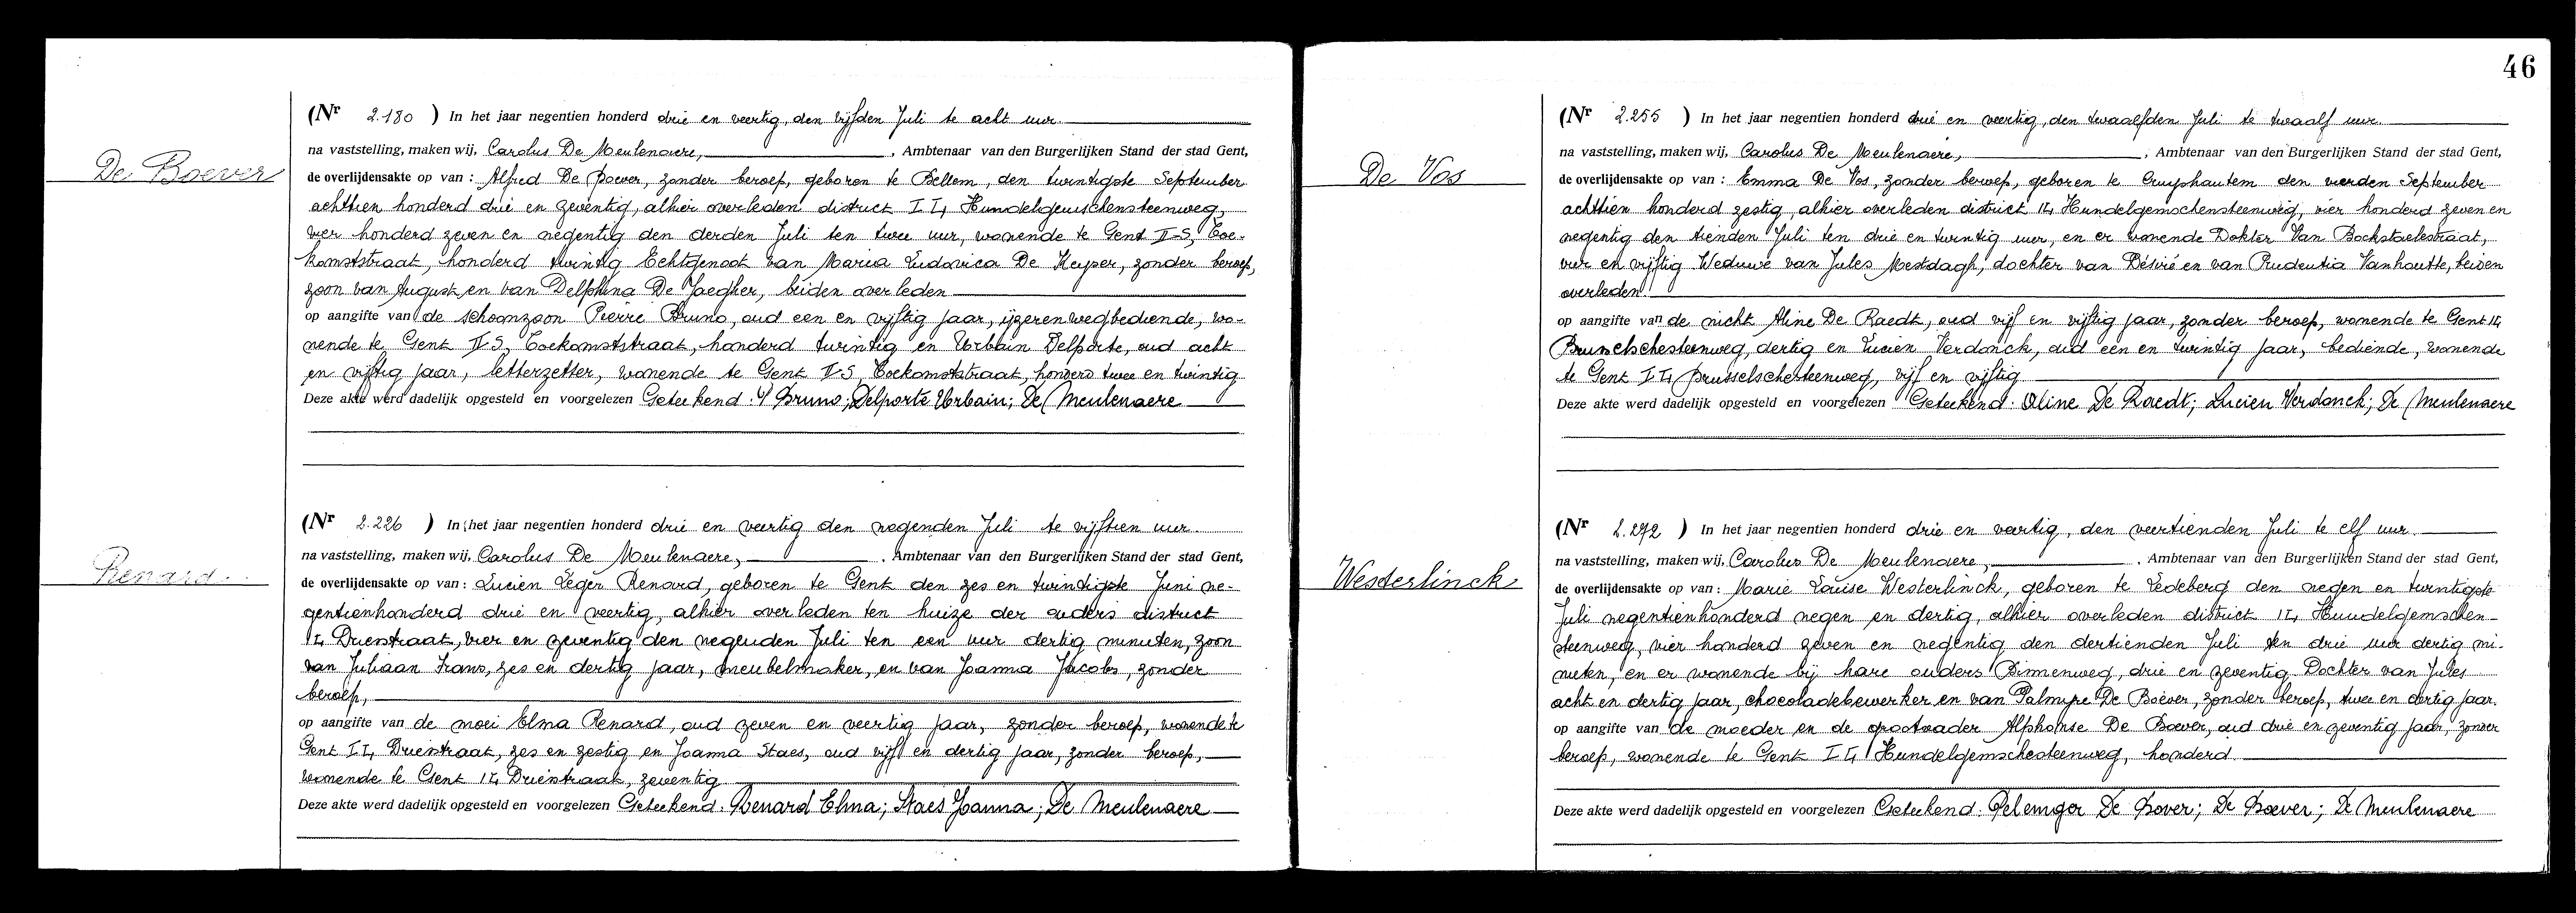 46
De Boever
(Nr 2.180 ) In het jaar negentien honderd drie en veertig, den vijfden Juli te acht uur.
na vaststelling, maken wij, Carolus De Meulenaere, , Ambtenaar van den Burgerlijken Stand der stad Gent,
de overlijdensakte op van : Alfred De Boever, zonder beroep, geboren te Bellem, den twintigste September
achttien honderd drie en zeventig, alhier overleden district I L, Hundelgemschensteenweg,
vier honderd zeven en negentig den derden Juli ten twee uur, wonende te Gent II-S, Toe-
komststraat, honderd twintig Echtgenoot van Maria Ludovica De Keyser, zonder beroep,
zoon van August en van Delphina De Jaegher, beiden overleden
op aangifte van de schoonzoon Pierre Bruno, oud een en vijftig jaar, ijzerenwegbediende, wo-
nende te Gent II-S, Toekomststraat, honderd twintig en Urbain Delporte, oud acht
en vijftig jaar, letterzetter, wonende te Gent II-S, Toekomststraat, honderd twee en twintig
Deze akte werd dadelijk opgesteld en voorgelezen Geteekend: P Bruno; Delporte Urbain; De Meulenaere
Renard
(Nr 2.226 ) In het jaar negentien honderd drie en veertig den negenden Juli te vijftien uur.
na vaststelling, maken wij, Carolus De Meulenaere, , Ambtenaar van den Burgerlijken Stand der stad Gent,
de overlijdensakte op van : Lucien Leger Renard, geboren te Gent den zes en twintigste Juni ne-
gentienhonderd drie en veertig, alhier overleden ten huize der ouders district
I L, Driesstraat, vier en zeventig den negenden Juli ten een uur dertig minuten, zoon
van Juliaan Frans, zes en dertig jaar, meubelmaker, en van Joanna Jacobs, zonder
beroep,
op aangifte van de moei Elma Renard, oud zeven en veertig jaar, zonder beroep, wonende te
Gent I L, Driesstraat, zes en zestig en Joanna Staes, oud vijf en dertig jaar, zonder beroep,
wonende te Gent I L, Driesstraat, zeventig
Deze akte werd dadelijk opgesteld en voorgelezen Geteekend: Renard Elma; Staes Joanna; De Meulenaere
De Vos
(Nr 2.255 ) In het jaar negentien honderd drie en veertig, den twaalfden Juli te twaalf uur.
na vaststelling, maken wij, Carolus De Meulenaere, , Ambtenaar van den Burgerlijken Stand der stad Gent,
de overlijdensakte op van : Emma De Vos, zonder beroep, geboren te Cruyshautem den vierden September
achttien honderd zestig, alhier overleden district I L, Hundelgemschensteenweg, vier honderd zeven en
negentig den tienden Juli ten drie en twintig uur, en er wonende Dokter Van Bockstaelestraat,
vier en vijftig Weduwe van Jules Mestdagh, dochter van Désiré en van Prudentia Vanhoutte, beiden
overleden.
op aangifte van de nicht Aline De Raedt, oud vijf en vijftig jaar, zonder beroep, wonende te Gent I L,
Brusselschesteenweg, dertig en Lucien Verdonck, oud een en twintig jaar, bediende, wonende
te Gent I L, Brusselschesteenweg, vijf en vijftig
Deze akte werd dadelijk opgesteld en voorgelezen Geteekend: Aline De Raedt; Lucien Verdonck; De Meulenaere
Westerlinck
(Nr 2.272 ) In het jaar negentien honderd drie en veertig, den veertienden Juli te elf uur.
na vaststelling, maken wij, Carolus De Meulenaere, , Ambtenaar van den Burgerlijken Stand der stad Gent,
de overlijdensakte op van : Marie Louise Westerlinck, geboren te Ledeberg den negen en twintigste
Juli negentienhonderd negen en dertig, alhier overleden district I L, Hundelgemschen-
steenweg, vier honderd zeven en negentig den dertienden Juli ten drie uur dertig mi-
nuten, en er wonende bij hare ouders Binnenweg, drie en zeventig Dochter van Jules
acht en dertig jaar, chocoladebewerker en van Palmyre De Boever, zonder beroep, twee en dertig jaar.
op aangifte van de moeder en de grootvader Alphonse De Boever, oud drie en zeventig jaar, zonder
beroep, wonende te Gent I L, Hundelgemschesteenweg, honderd.
Deze akte werd dadelijk opgesteld en voorgelezen Geteekend: De Bover; De Boever; De Meulenaere